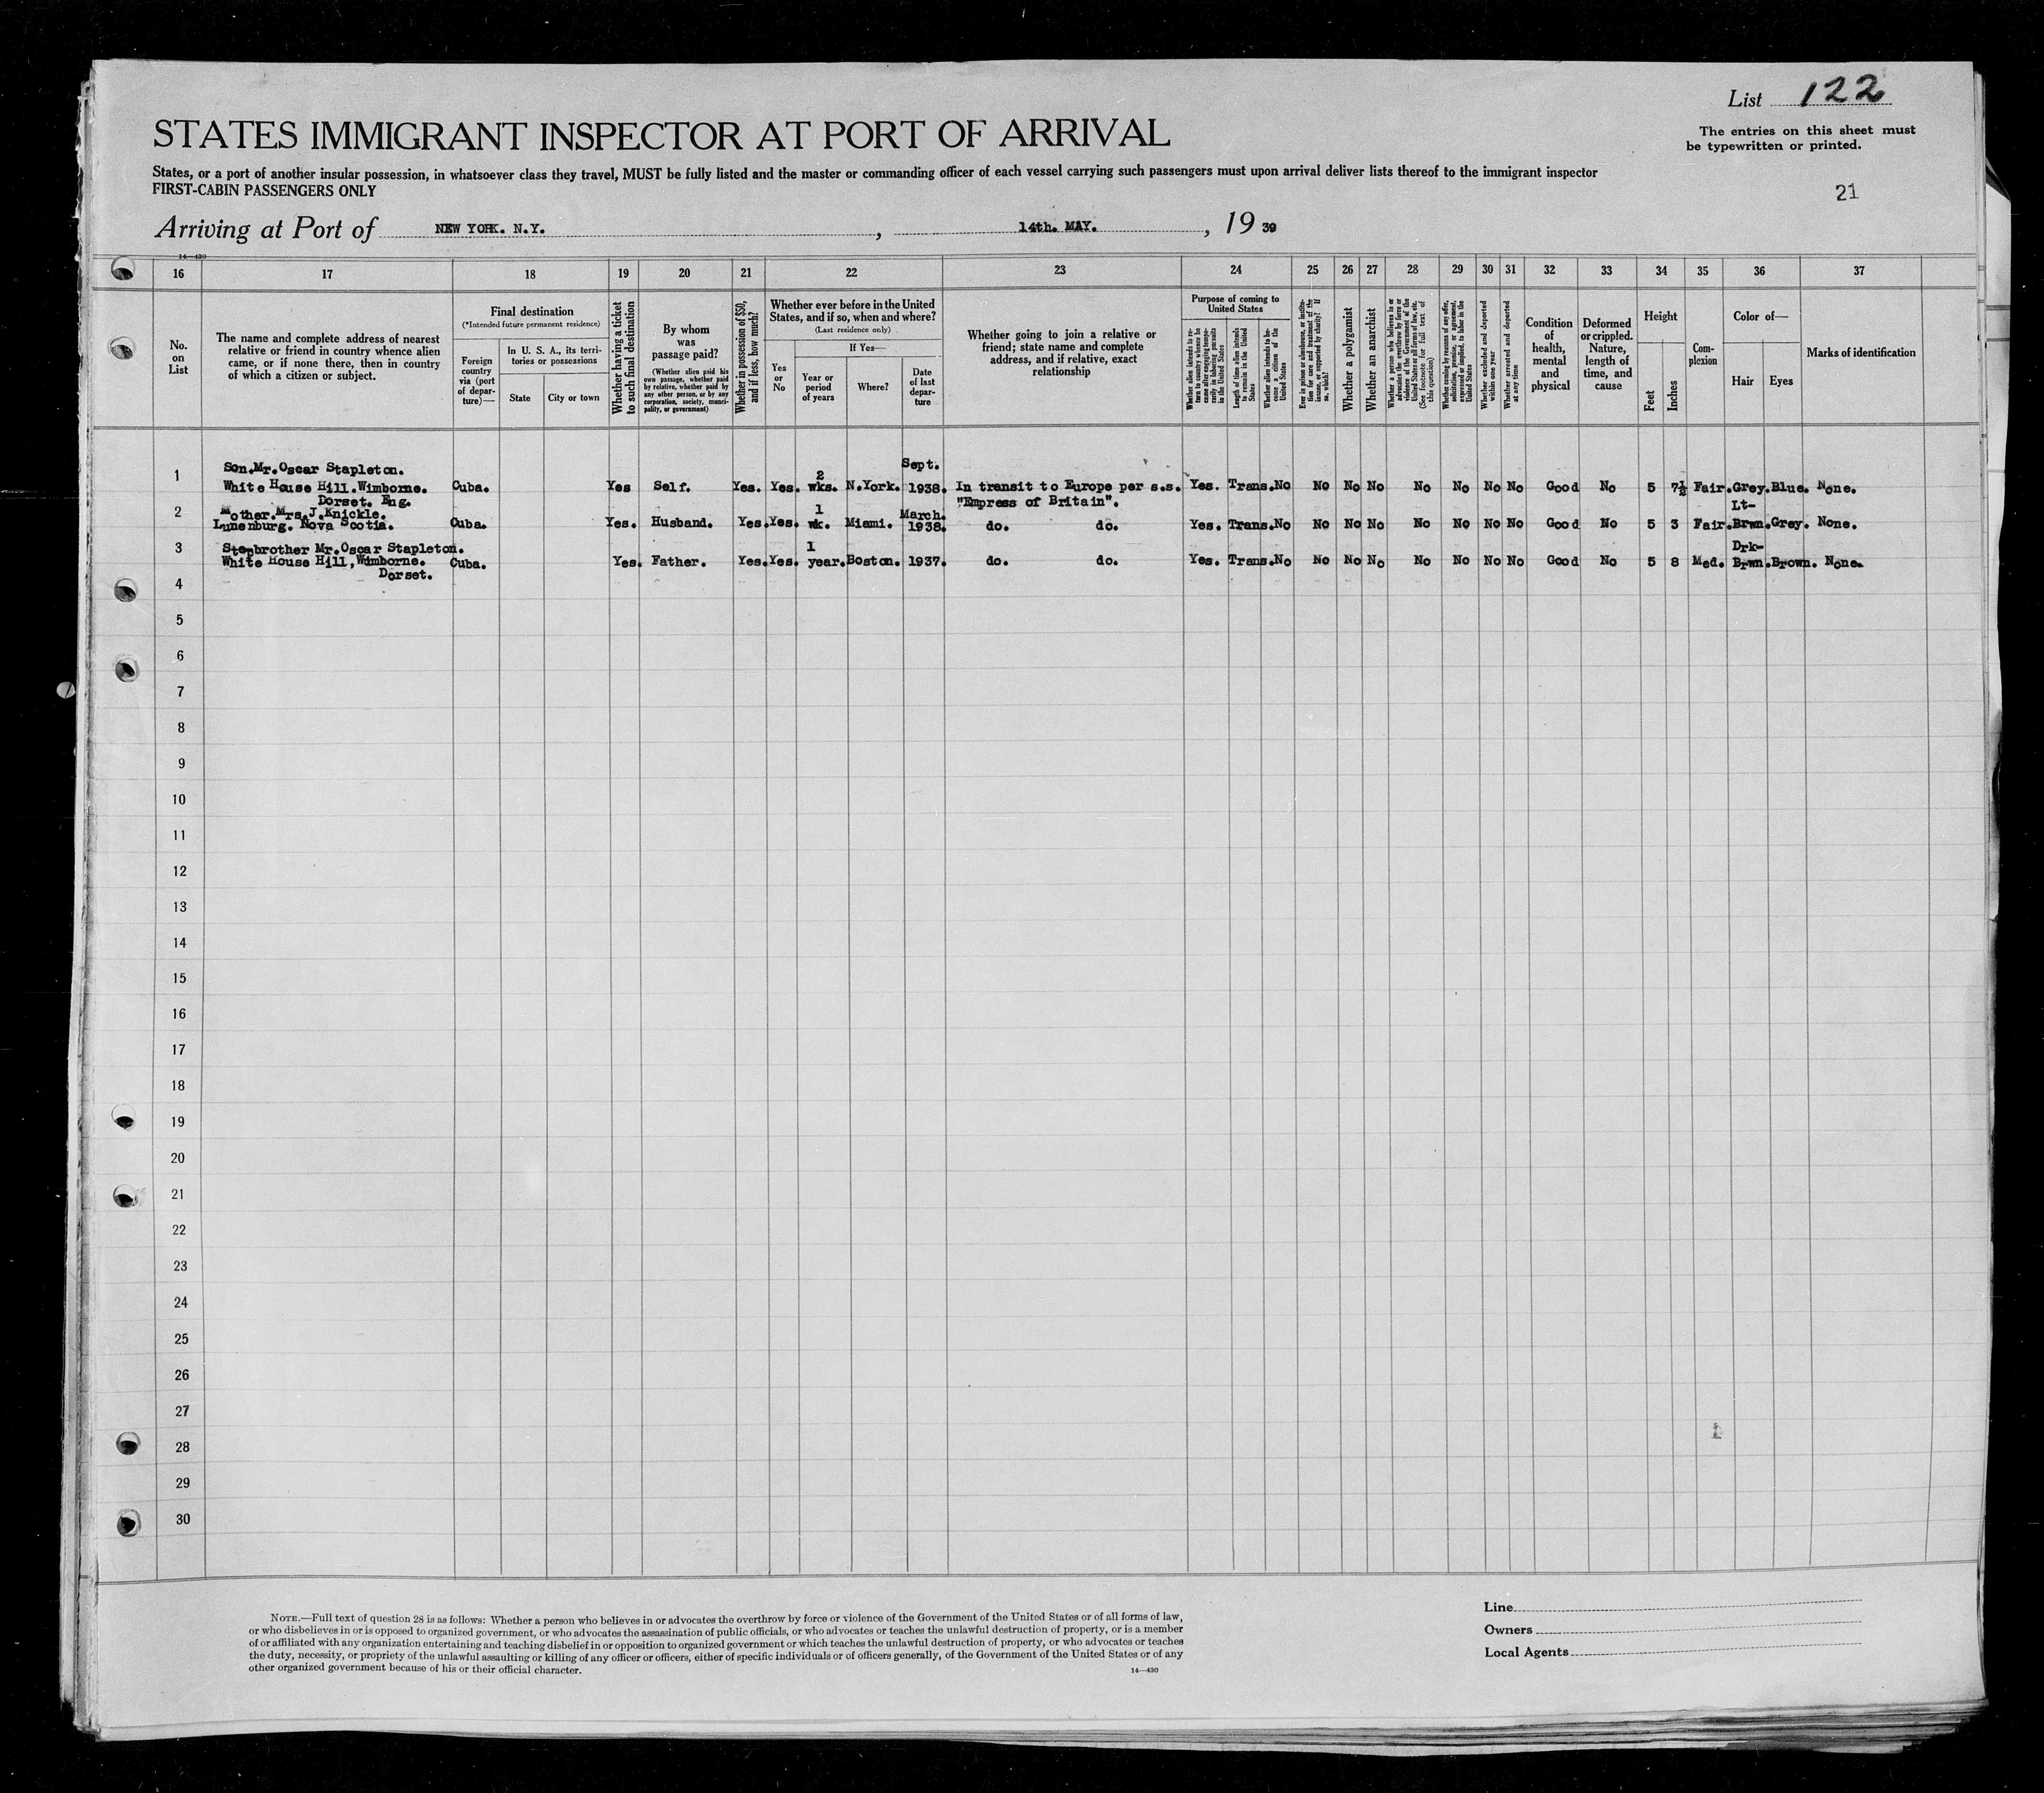 List 122
STATES IMMIGRANT INSPECTOR AT PORT OF ARRIVAL
The entries on this sheet must
be typewritten or printed.
States, or a port of another insular possession, in whatsoever class they travel, MUST be fully listed and the master or commanding officer of each vessel carrying such passengers must upon arrival deliver lists thereof to the immigrant inspector
FIRST-CABIN PASSENGERS ONLY
21
Arriving at Port of NEW YORK. N.Y. , 14th. MAY. , 19 39
14—430
16 17 18 19 20 21 22 23 24 25 26 27 28 29 30 31 32 33 34 35 36 37
No.
on
List
The name and complete address of nearest
relative or friend in country whence alien
came, or if none there, then in country
of which a citizen or subject.
Final destination
(*Intended future permanent residence)
Foreign
country
via (port
of depar-
ture)—
In U. S. A., its terri-
tories or possessions
State
City or town
Whether having a ticket
to such final destination
By whom
was
passage paid?
(Whether alien paid his
own passage, whether paid
by relative, whether paid by
any other person, or by any
corporation, society, munici-
pality, or government)
Whether in possession of $50,
and if less, how much?
Whether ever before in the United
States, and if so, when and where?
(Last residence only)
Yes
or
No
If Yes—
Year or
period
of years
Where?
Date
of last
depar-
ture
Whether going to join a relative or
friend; state name and complete
address, and if relative, exact
relationship
Purpose of coming to
United States
Whether alien intends to re-
turn to country whence he
came after engaging tempo-
rarily in laboring pursuits
in the United States
Length of time alien intends
to remain in the United
States
Whether alien intends to be-
come a citizen of the
United States
Ever in prison or almshouse, or institu-
tion for care and treatment of the
insane, or supported by charity? If
so, which?
Whether a polygamist
Whether an anarchist
Whether a person who believes in or
advocates the overthrow by force or
violence of the Government of the
United States or all forms of law, etc.
(See footnote for full text of
this question)
Whether coming by reason of any offer,
solicitation, promise, or agreement,
expressed or implied, to labor in the
United States
Whether excluded and deported
within one year
Whether arrested and deported
at any time
Condition
of
health,
mental
and
physical
Deformed
or crippled.
Nature,
length of
time, and
cause
Height
Feet
Inches
Com-
plexion
Color of—
Hair
Eyes
Marks of identification
1 Son.Mr.Oscar Stapleton.
White House Hill.Wimborne.
Dorset. Eng.
Cuba. Yes Self. Yes. Yes. 2 wks. N.York. Sept. 1938. In transit to Europe per s.s.
"Empress of Britain".
Yes. Trans.No No No No No No No No Good No 5 7½ Fair.Grey.Blue. None.
2 Mother.Mrs.J.Knickle.
Lunenburg. Nova Scotia.
Cuba. Yes. Husband. Yes.Yes. 1 wk. Miami. March. 1938. do. do. Yes. Trans.No No No No No No No No Good No 5 3 Fair. Lt-Brwn.Grey. None.
3 Stepbrother Mr.Oscar Stapleton.
White House Hill,Wimborne.
Dorset.
Cuba. Yes. Father. Yes.Yes. 1 year.Boston. 1937. do. do. Yes. Trans.No No No No No No No No Good No 5 8 Med. Drk-Brwn.Brown. None.
4
5
6
7
8
9
10
11
12
13
14
15
16
17
18
19
20
21
22
23
24
25
26
27
28
29
30
NOTE.—Full text of question 28 is as follows: Whether a person who believes in or advocates the overthrow by force or violence of the Government of the United States or of all forms of law,
or who disbelieves in or is opposed to organized government, or who advocates the assassination of public officials, or who advocates or teaches the unlawful destruction of property, or is a member
of or affiliated with any organization entertaining and teaching disbelief in or opposition to organized government or which teaches the unlawful destruction of property, or who advocates or teaches
the duty, necessity, or propriety of the unlawful assaulting or killing of any officer or officers, either of specific individuals or of officers generally, of the Government of the United States or of any
other organized government because of his or their official character.
14—430
Line
Owners
Local Agents